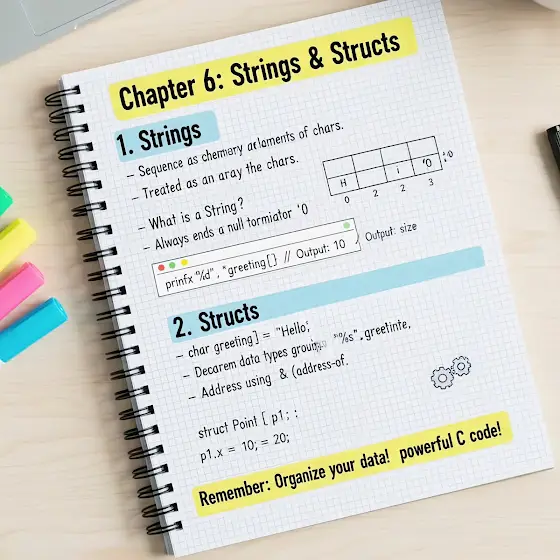 Chapter 6: Strings & Structs
1. Strings
- Sequence as chemary arloments of chars.
- Treated as an aray the chars.
H i '0 :0
0 2 2 3
- What is a String?
- Always ends a null tormiator '0
prinfx "%d" , "greeting[} // Output: 10
Output: size
2. Structs
- char greeting] = "Hello';
- Decarem data types "%s", greetinte,
- Address using & (address-of.
struct Point [ p1 ; :
p1.x = 10; = 20;
Remember: Organize your data! powerful C code!